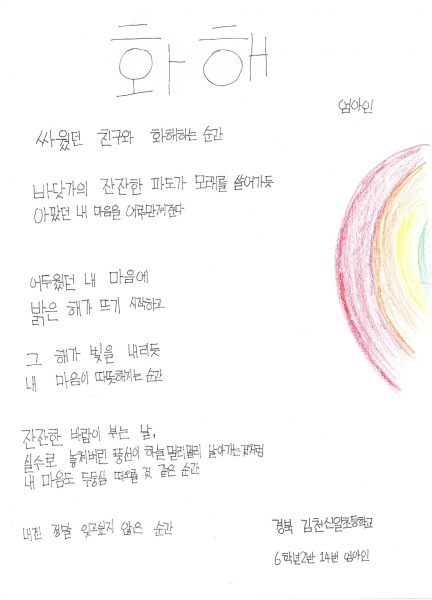 화해
엄아인
싸웠던 친구와 화해하는 순간
바닷가의 잔잔한 파도가 모래를 쓸어가듯
아팠던 내 마음을 어루만져준다
어두웠던 내 마음에
밝은 해가 뜨기 시작하고
그 해가 빛을 내려듯
내 마음이 따뜻해지는 순간
잔잔한 바람이 부는 날,
실수로 놓쳐버린 풍선이 하늘 멀리멀리 날아가는것처럼
내 마음도 두둥실 떠오를 것 같은 순간
내진 정말 잊고싶지 않은 순간
경북 김천신일초등학교
6학년2반 14번 엄아인